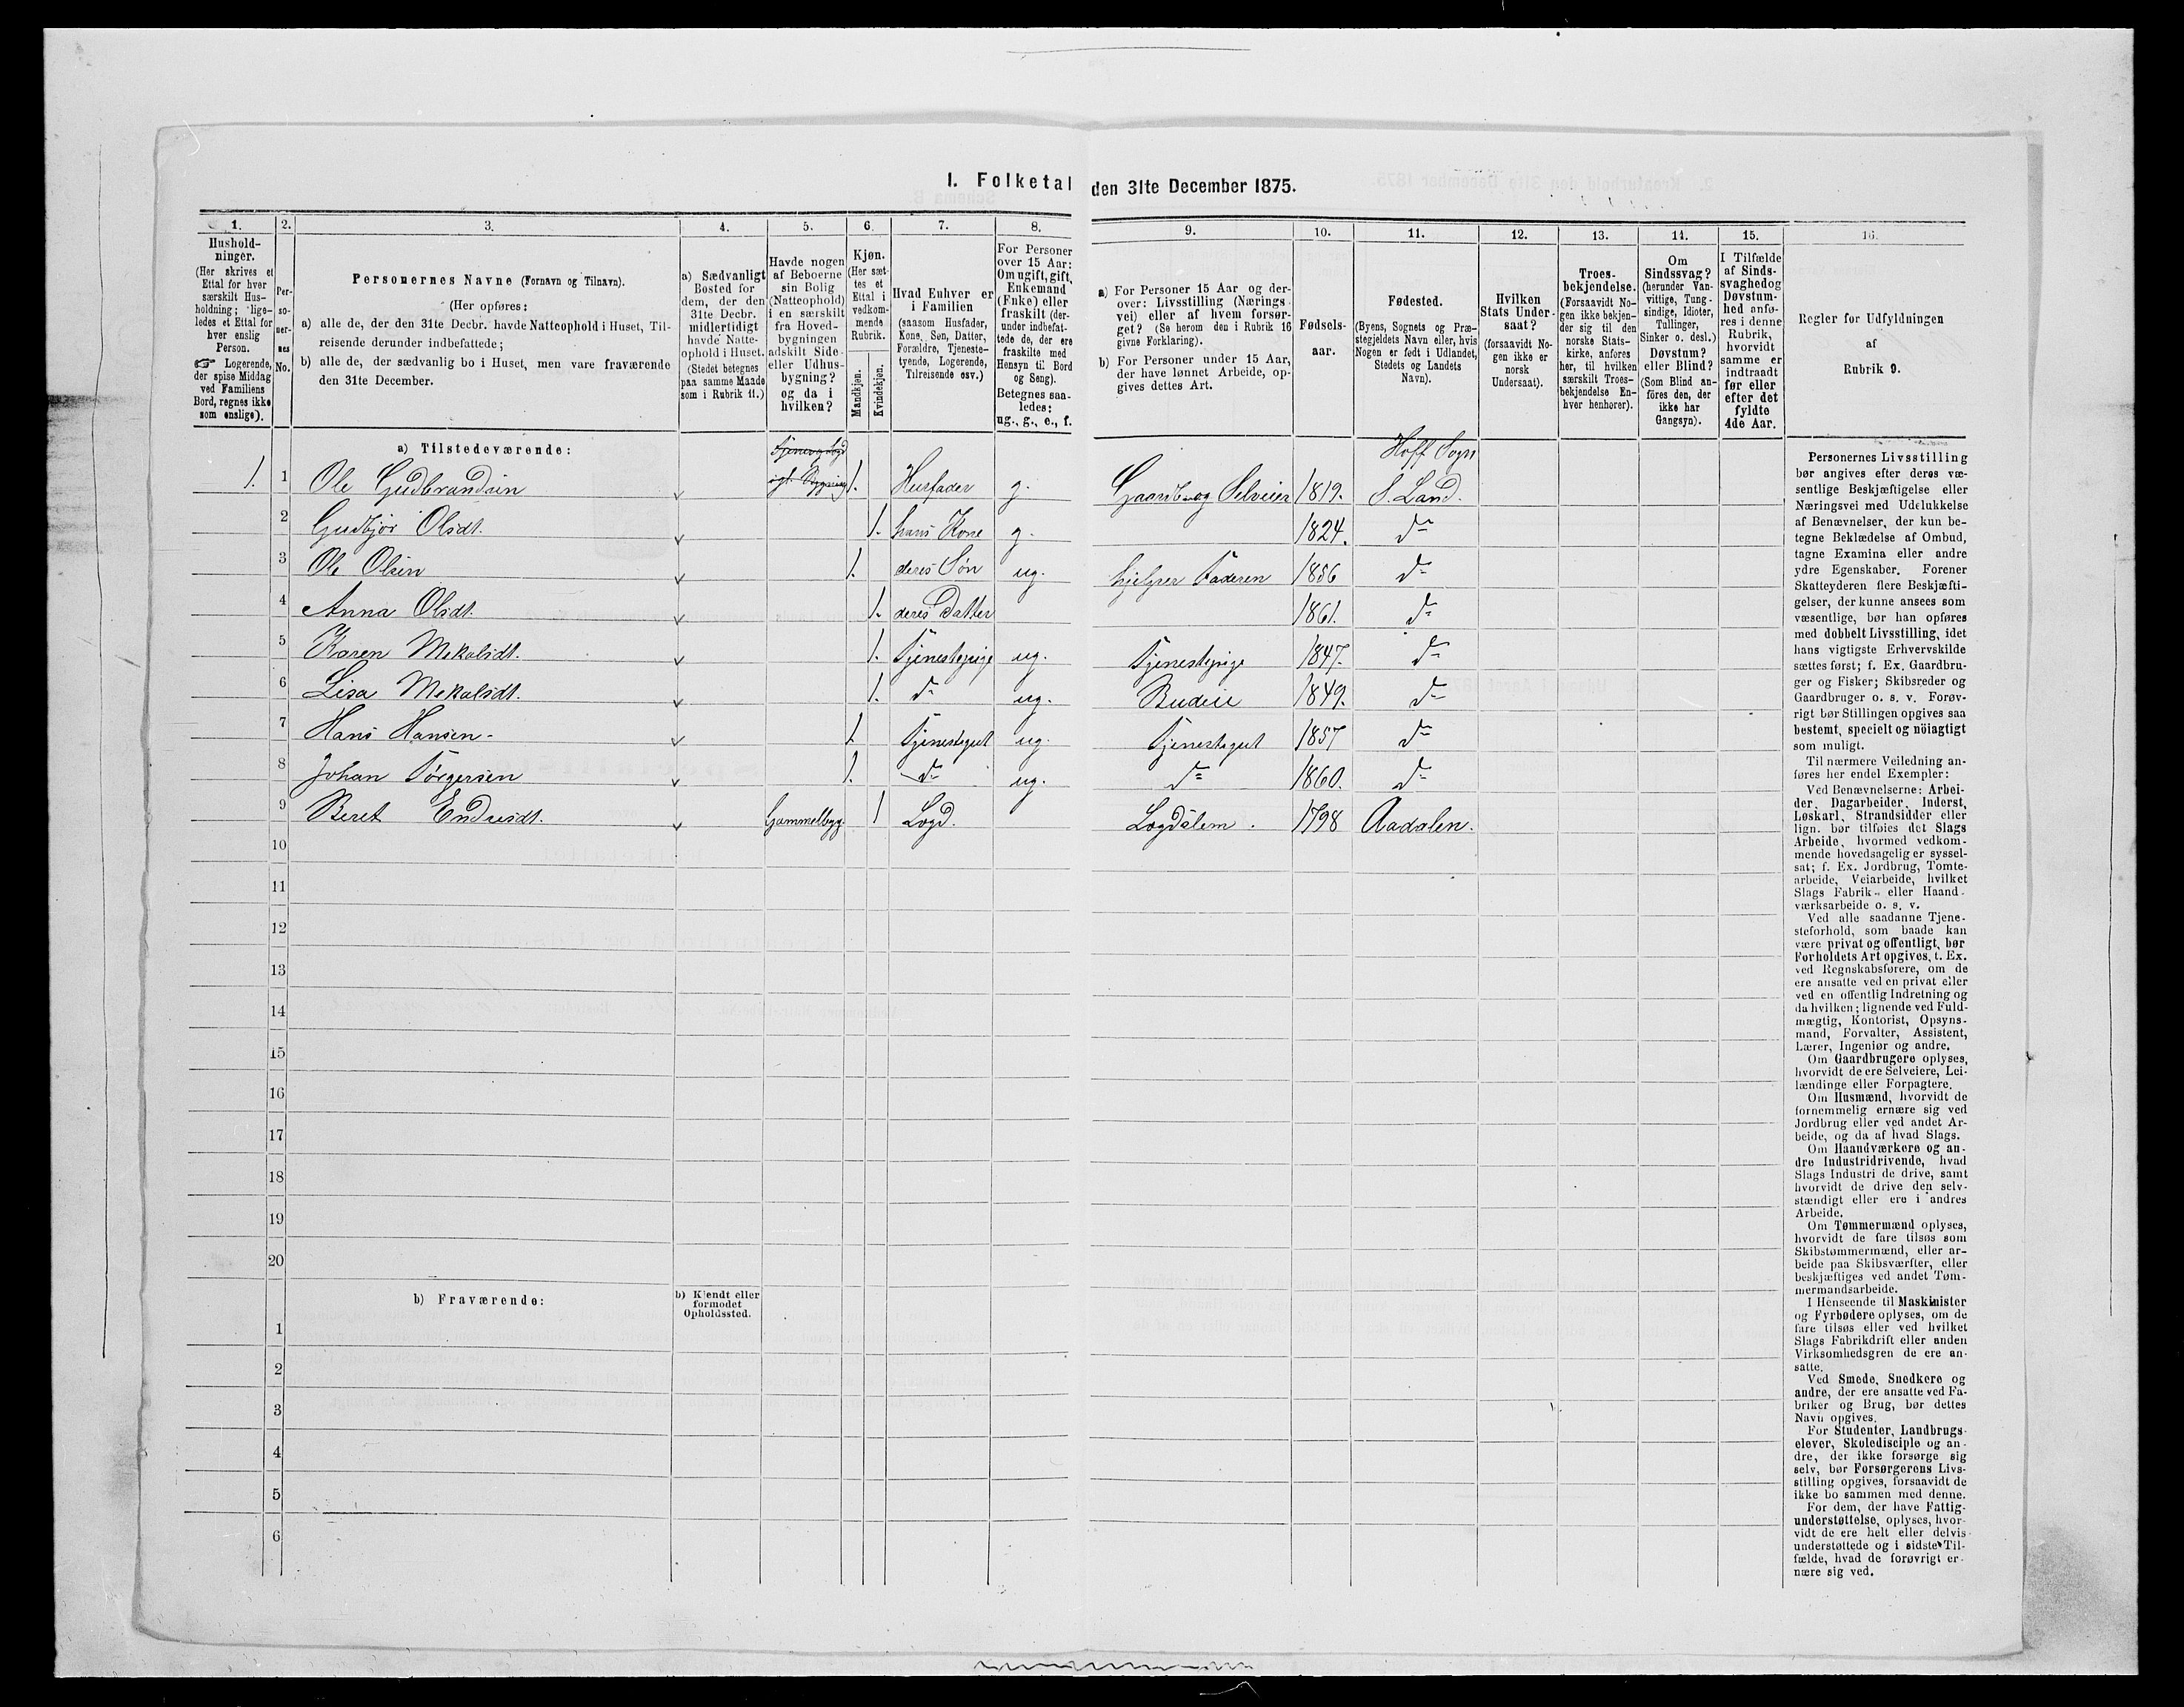 I. Folketal den 31te December 1875.
1.
Hushold-
ninger.
(Her skrives et
Ettal for hver
særskilt Hus-
holdning; lige-
ledes et Ettal for
hver enslig
Person.
☞ Logerende,
der spise Middag
ved Familiens
Bord, regnes ikke
som enslige).
2.
Per-
so-
ner-
nes
No.
3.
Personernes Navne (Fornavn og Tilnavn).
(Her opføres:
a) alle de, der den 31te Decbr. havde Natteophold i Huset, Til-
reisende derunder indbefattede;
b) alle de, der sædvanlig bo i Huset, men vare fraværende
den 31te December.
4.
a) Sædvanligt
Bosted for
dem, der den
31te Decbr.
midlertidigt
havde Natte-
ophold i Huset.
(Stedet betegnes
paa samme Maade
som i Rubrik 11.)
5.
Havde nogen
af Beboerne
sin Bolig
(Natteophold)
i en særskilt
fra Hoved-
bygningen
adskilt Side-
eller Udhus-
bygning?
og da i
hvilken?
6.
Kjøn.
(Her sæt-
tes et
Ettal i
vedkom-
mende
Rubrik.
Mandkjøn.
Kvindekjøn.
7.
Hvad Enhver er
i Familien
(saasom Husfader,
Kone, Søn, Datter,
Forældre, Tjeneste-
tyende, Logerende,
Tilreisende osv.)
8.
For Personer
over 15 Aar:
Om ugift, gift,
Enkemand
(Enke) eller
fraskilt (der-
under indbefat-
tede de, der ere
fraskilte med
Hensyn til Bord
og Seng).
Betegnes saa-
ledes:
ug., g., e., f.
9.
a) For Personer 15 Aar og der-
over: Livsstilling (Nærings-
vei) eller af hvem forsør-
get? (Se herom den i Rubrik 16
givne Forklaring).
b) For Personer under 15 Aar,
der have lønnet Arbeide, op-
gives dettes Art.
10.
Fødsels-
aar.
11.
Fødested.
(Byens, Sognets og Præ-
stegjeldets Navn eller, hvis
Nogen er født i Udlandet,
Stedets og Landets
Navn).
12.
Hvilken
Stats Under-
saat?
(forsaavidt No-
gen ikke er
norsk
Undersaat).
13.
Troes-
bekjendelse.
(Forsaavidt No-
gen ikke bekjen-
der sig til den
norske Stats-
kirke, anføres
her, til hvilken
særskilt Troes-
bekjendelse En-
hver henhører).
14.
Om
Sindssvag?
(herunder Van-
vittige, Tung-
sindige, Idioter,
Tullinger,
Sinker o. desl.)
Døvstum?
eller Blind?
(Som Blind an-
føres den, der
ikke har
Gangsyn).
15.
I Tilfælde
af Sinds-
svaghed og
Døvstum-
hed anfø-
res i denne
Rubrik,
hvorvidt
samme er
indtraadt
før eller
efter det
fyldte
4de Aar.
16.
Regler for Udfyldningen
af
Rubrik 9.
a) Tilstedeværende:
Hoff Sogn
1. 1 Ole Gudbrandsen 1. Husfader g. Gaardb. og Selveier 1819. S. Land.
2 Gudbjør Olsdt. 1. hans Kone g. 1824. do
3 Ole Olsen 1. deres Søn ug. hjelper Faderen 1856 do
4 Anna Olsdt. 1. deres Datter 1861. do
5 Karen Mekalsdt. 1. Tjenestepige ug. Tjenestepige 1847. do
6 Lisa Mekalsdt. 1. do ug. Budeie 1849. do
7 Hans Hansen 1 Tjenestegut ug. Tjenestegut 1857 do
8 Johan Torgersen 1. do ug. do 1860. do
9 Beret Endresdt. Gammelbyg. 1 Logd. Logdslem. 1798 Aadalen.
10
11
12
13
14
15
16
17
18
19
20
b) Fraværende:
b) Kjendt eller
formodet
Opholdssted.
1
2
3
4
5
6
Personernes Livsstilling
bør angives efter deres væ-
sentlige Beskjæftigelse eller
Næringsvei med Udelukkelse
af Benævnelser, der kun be-
tegne Beklædelse af Ombud,
tagne Examina eller andre
ydre Egenskaber. Forener
Skatteyderen flere Beskjæfti-
gelser, der kunne ansees som
væsentlige, bør han opføres
med dobbelt Livsstilling, idet
hans vigtigste Erhvervskilde
sættes først; f. Ex. Gaardbru-
ger og Fisker; Skibsreder og
Gaardbruger o. s. v. Forøv-
rigt bør Stillingen opgives saa
bestemt, specielt og nöiagtigt
som muligt.
Til nærmere Veiledning an-
føres her endel Exempler:
Ved Benævnelserne: Arbei-
der, Dagarbeider, Inderst,
Løskarl, Strandsidder eller
lign. bør tilføies det Slags
Arbeide, hvormed vedkom-
mende hovedsagelig er syssel-
sat; f. Ex. Jordbrug, Tomte-
arbeide, Veiarbeide, hvilket
Slags Fabrik- eller Haand-
værksarbeide o. s. v.
Ved alle saadanne Tjene-
steforhold, som baade kan
være privat og offentligt, bør
Forholdets Art opgives, f. Ex.
ved Regnskabsførere, om de
ere ansatte ved en privat eller
ved en offentlig Indretning og
da hvilken; lignende ved Fuld-
mægtig, Kontorist, Opsyns-
mand, Forvalter, Assistent,
Lærer, Ingeniør og andre.
Om Gaardbrugere oplyses,
hvorvidt de ere Selveiere, Lei-
lændinge eller Forpagtere.
Om Husmænd, hvorvidt de
fornemmelig ernære sig ved
Jordbrug eller ved andet Ar-
beide, og da af hvad Slags.
Om Haandværkere og an-
dre Industridrivende, hvad
Slags Industri de drive, samt
hvorvidt de drive den selv-
stændigt eller ere i andres
Arbeide.
Om Tømmermænd oplyses,
hvorvidt de fare tilsøs som
Skibstømmermænd, eller ar-
beide paa Skibsværfter, eller
beskjæftiges ved andet Tøm-
mermandsarbeide.
I Henseende til Maskinister
og Fyrbødere oplyses, om de
fare tilsøs eller ved hvilket
Slags Fabrikdrift eller anden
Virksomhedsgren de ere an-
satte.
Ved Smede, Snedkere og
andre, der ere ansatte ved Fa-
briker og Brug, bør dettes
Navn opgives.
For Studenter, Landbrugs-
elever, Skoledisciple og an-
dre, der ikke forsørge sig
selv, bør Forsørgerens Livs-
stilling opgives, forsaavidt de
ikke bo sammen med denne.
For dem, der have Fattig-
understøttelse, oplyses, hvor-
vidt de ere helt eller delvis
understøttede og i sidste Til-
fælde, hvad de forøvrigt er-
nære sig ved.